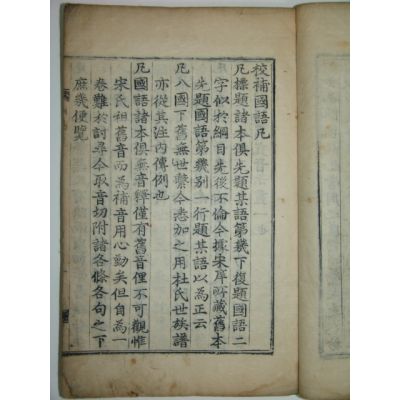 校補國語凡
凡標題諸本俱先題某語第幾下復題國語二
字似於綱目先後不倫今據宋庠所藏舊本
先題國語第幾別一行題某語以為正云
凡八國下舊無世繫今悉加之用杜氏世族譜
亦從其註內傳例也
凡國語諸本俱無音釋僅有舊音俚不可觀惟
宋氏祖舊音而為補音用心勤矣但自為一
卷難於討尋今取音切附諸各條各句之下
庶幾便覽